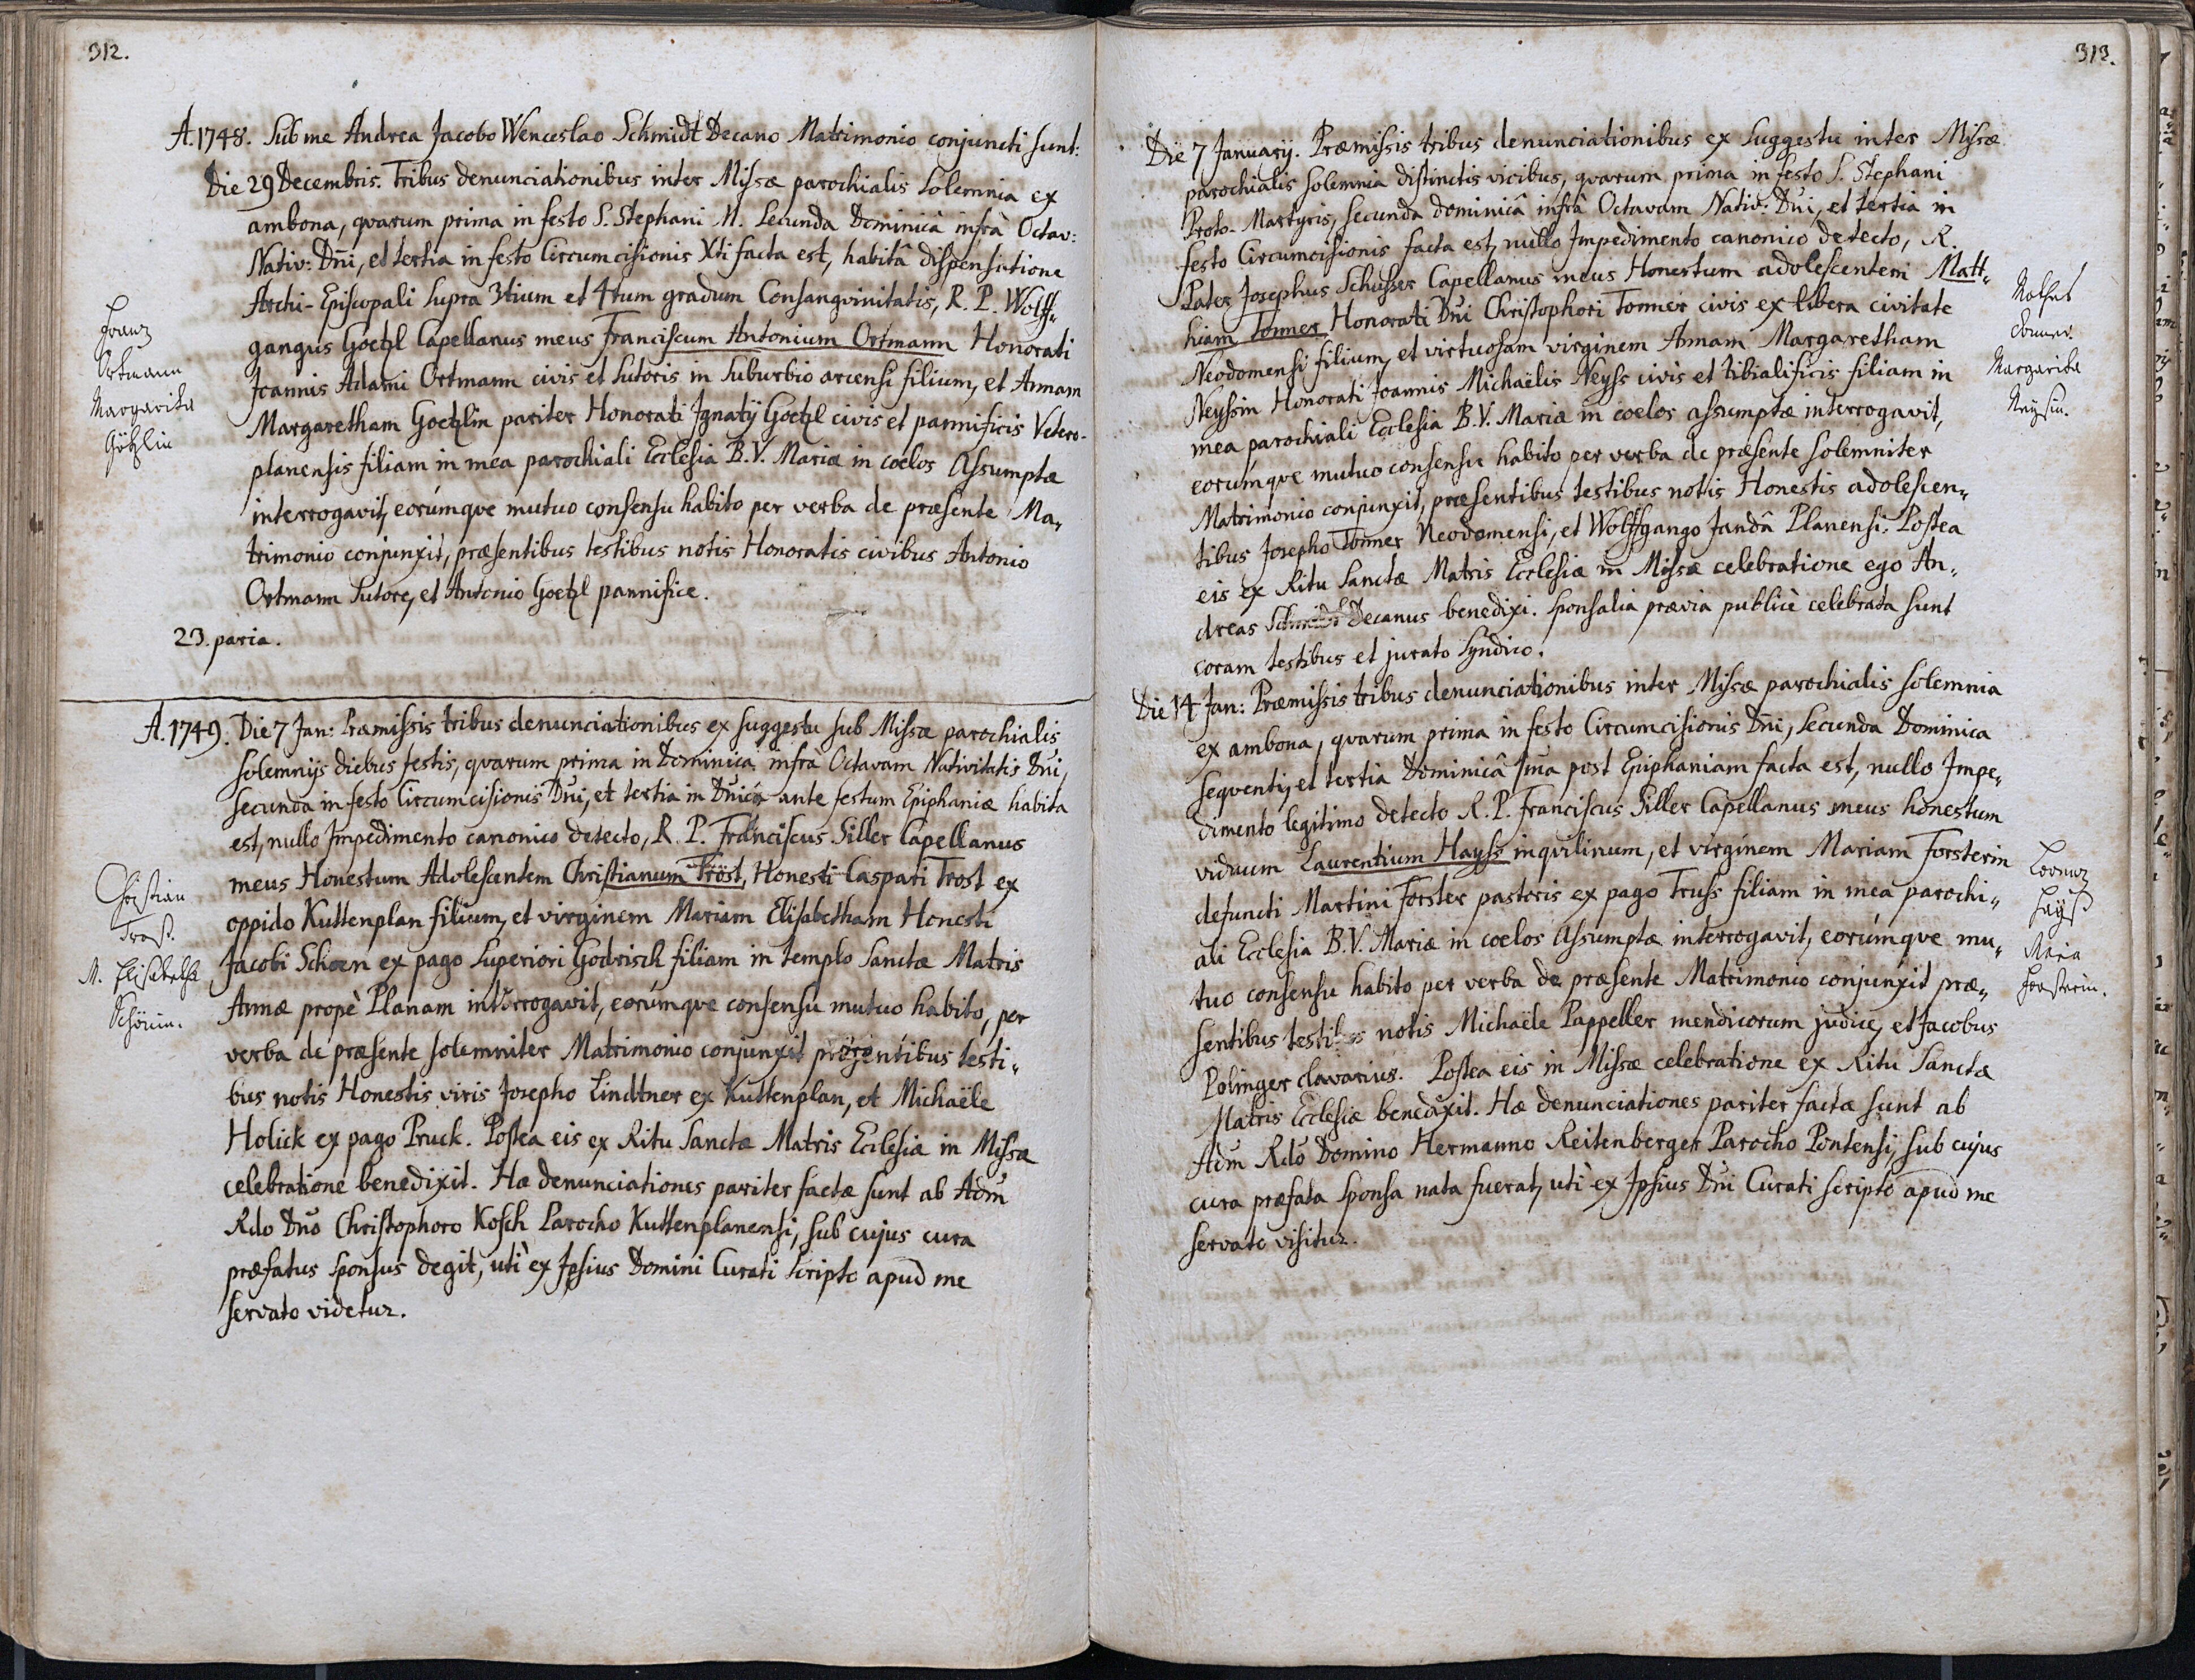 312.
A. 1748. Sub me Andrea Jacobo Wenceslao Schmidt Decano Matrimonio conjuncti sunt:
Die 29 Decembris. Tribus denunciationibus inter Missæ parochialis Solemnia ex
ambona, qvarum prima in festo S. Stephani M. Secunda Dominicâ infrà Octav:
Nativ: Dn̄i, et tertia in festo Circumcisionis Xti facta est, habitâ dispensatione
Archi-Episcopali supra 3tium et 4tum gradum Consangvinitatis, R. P. Wolff„
gangus Goetzl Capellanus meus Franciscum Antonium Ortmann Honorati
Joannis Adami Ortmann civis et Sutoris in Suburbio arcensi filium, et Annam
Margaretham Goetzlin pariter Honorati Ignatÿ Goetzl civis et pannificis Vetero-
planensis filiam in mea parochiali Ecclesia B.V. Mariæ in coelos Assumptæ
interrogavit, eorúmqve mutuo consensu habito per verba de præsente Ma„
trimonio conjunxit, præsentibus testibus notis Honoratis civibus Antonio
Ortmann Sutore, et Antonio Goetzl pannifice.
Franz
Ortmann
Margaritha
Götzlin
23. paria.
A. 1749. Die 7 Jan: Præmissis tribus denunciationibus ex suggestu sub Missæ parochialis
solemnÿs diebus festis, qvarum prima in Dominica infrà Octavam Nativitatis Dn̄i,
secunda in festo Circumcisionis Dn̄i, et tertia in Dn̄icâ ante festum Epiphaniæ habita
est, nullo Impedimento canonico detecto, R. P. Franciscus Siller Capellanus
meus Honestum Adolescentem Christianum Tröst, Honesti Caspari Trost ex
oppido Kuttenplan filium, et virginem Mariam Elisabetham Honesti
Jacobi Schoen ex pago Superiori Godrisch filiam in templo Sanctæ Matris
Annæ propè Planam interrogavit, eorúmqve consensu mutuo habito, per
verba de præsente solemniter Matrimonio conjunxit præsentibus testi„
bus notis Honestis viris Josepho Lindtner ex Kuttenplan, et Michaële
Holick ex pago Pruck. Postea eis ex Ritu Sanctæ Matris Ecclesiæ in Missæ
celebratione benedixit. Hæ denunciationes pariter factæ sunt ab Adm̄
Rdo Dn̄o Christophoro Kosch Parocho Kuttenplanensi, sub cujus cura
præfatus sponsus degit, uti ex Ipsius Domini Curati scripto apud me
servato videtur.
Christian
Trost.
M. Elisabetha
Schönin.
313.
Die 7 Januarÿ. Præmissis tribus denunciationibus ex suggestu inter Missæ
parochialis solemnia distinctis vicibus, qvarum prima in festo S. Stephani
Proto-Martyris, secunda dominicâ infrà Octavam Nativ: Dn̄i, et tertia in
festo Circumcisionis facta est, nullo Impedimento canonico detecto, R.
Pater Josephus Schusser Capellanus meus Honestum adolescentem Matt„
hiam Tonner Honorati Dn̄i Christophori Tonner civis ex libera civitate
Neodomensi filium, et virtuosam virginem Annam Margaretham
Neyssin Honorati Joannis Michaëlis Neyss civis et tibialificis filiam in
mea parochiali Ecclesia B.V. Mariæ in coelos assumptæ interrogavit,
eorúmqve mutuo consensu habito per verba de præsente solemniter
Matrimonio conjunxit, præsentibus testibus notis Honestis adolescen„
tibus Josepho Tonner Neodomensi, et Wolffgango Jandâ Planensi. Postea
eis ex Ritu Sanctæ Matris Ecclesiæ in Missæ celebratione ego An„
dreas Schmidt Decanus benedixi. Sponsalia prævia publicè celebrata sunt
coram testibus et jurato Syndico.
Mathes
Donner.
Margaritha
Neysin.
Die 14 Jan: Præmissis tribus denunciationibus inter Missæ parochialis solemnia
ex ambona, qvarum prima in festo Circumcisionis Dn̄i, secunda Dominica
seqventi, et tertia Dominicâ Im̄a post Epiphaniam facta est, nullo Impe„
dimento legitimo detecto R. P. Franciscus Siller Capellanus meus honestum
viduum Laurentium Hayss inqvilinum, et virginem Mariam Forsterin
defuncti Martini Forster pastoris ex pago Truss filiam in mea parochi„
ali Ecclesia B.V. Mariæ in coelos Assumptæ interrogavit, eorúmqve mu„
tuo consensu habito per verba de præsente Matrimonio conjunxit præ„
sentibus testibus notis Michaële Pappeller mendicorum judice, et Jacobus
Polinger clavarius. Postea eis in Missæ celebratione ex Ritu Sanctæ
Matris Ecclesiæ benedixit. Hæ denunciationes pariter factæ sunt ab
Adm̄ Rdo Domino Hermanno Reitenberger Parocho Pontensi, sub cujus
cura præfata sponsa nata fuerat, uti ex Ipsius Dn̄i Curati scripto apud me
servato visitur.
Lorenz
Hayß
Maria
Forsterin.